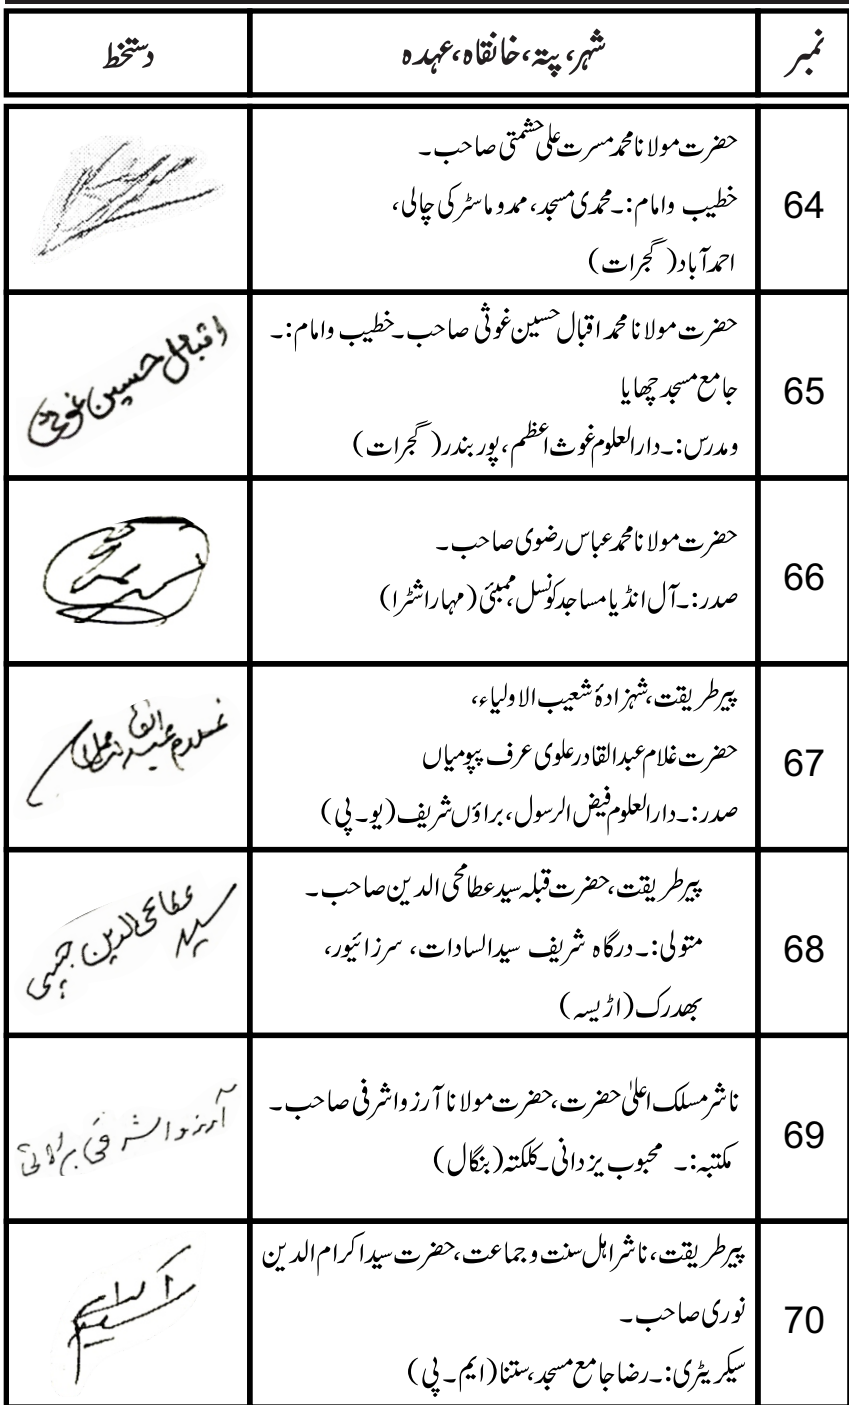 نمبر شہر، پتہ، خانقاہ، عہدہ دستخط
64 حضرت مولانا محمد مسرت علی حشمتی صاحب۔
خطیب وامام:۔محمدی مسجد، ممدو ماسٹر کی چالی،
احمد آباد (گجرات)
65 حضرت مولانا محمد اقبال حسین غوثی صاحب۔خطیب وامام:۔
جامع مسجد چھایا
ومدرس:۔دارالعلوم غوث اعظم، پور بندر (گجرات)
اقبال حسین غوثی
66 حضرت مولانا محمد عباس رضوی صاحب۔
صدر:۔آل انڈیا مساجد کونسل، ممبئی (مہاراشٹرا)
67 پیر طریقت، شہزادۂ شعیب الاولیاء،
حضرت غلام عبدالقادر علوی عرف پپو میاں
صدر:۔دارالعلوم فیض الرسول، براؤں شریف (یو۔پی)
68 پیر طریقت، حضرت قبلہ سید عطا محی الدین صاحب۔
متولی:۔درگاہ شریف سیدالسادات، سرزائپور،
بھدرک (اڑیسہ)
سید عطا محی الدین حبیبی
69 ناشر مسلک اعلیٰ حضرت، حضرت مولانا آرزو اشرفی صاحب۔
مکتبہ:۔ محبوب یزدانی۔کلکتہ (بنگال)
آرزو اشرفی
70 پیر طریقت، ناشر اہل سنت و جماعت، حضرت سید اکرام الدین
نوری صاحب۔
سیکریٹری:۔رضا جامع مسجد، ستنا (ایم۔پی)